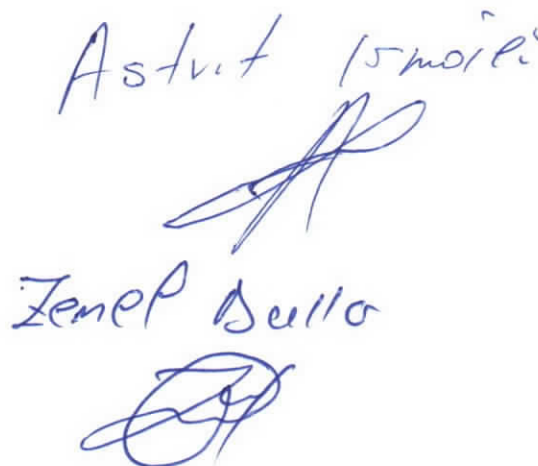 Astrit Ismaili
Zenel Bulla